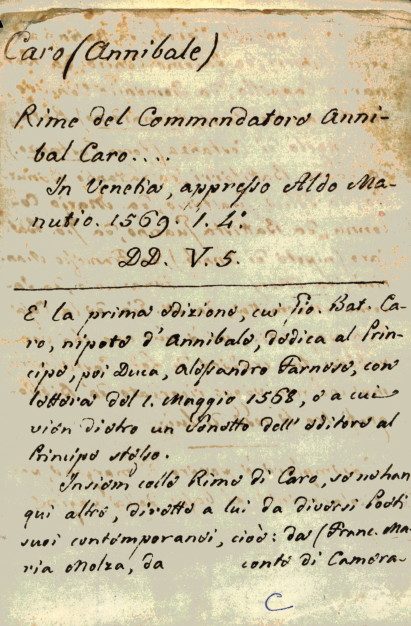 Caro (Annibale)
Rime del Commendatore Anni-
bal Caro....
In Venetia, appresso Aldo Ma-
nutio. 1569. 1. 4º
DD. V. 5.
E' la prima edizione, cui Gio. Bat. Ca-
ro, nipote d'Annibale, dedica al Prin-
cipe, poi Duca, Alessandro Farnese, con
lettera del 1. Maggio 1568, e a cui
vien dietro un Sonetto dell' editore al
Principe stesso.
Insiem colle Rime di Caro, se nehan
qui altre, dirette a lui da diversi Poeti
suoi contemporanei, cioè: da (Franc. Ma-
ria Molza, da conte di Camera-
C